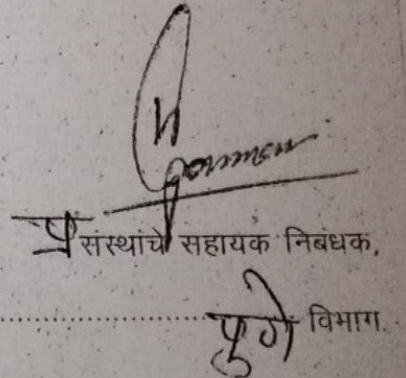 प्र संस्थांचे सहायक निबंधक,
पुणे विभाग.